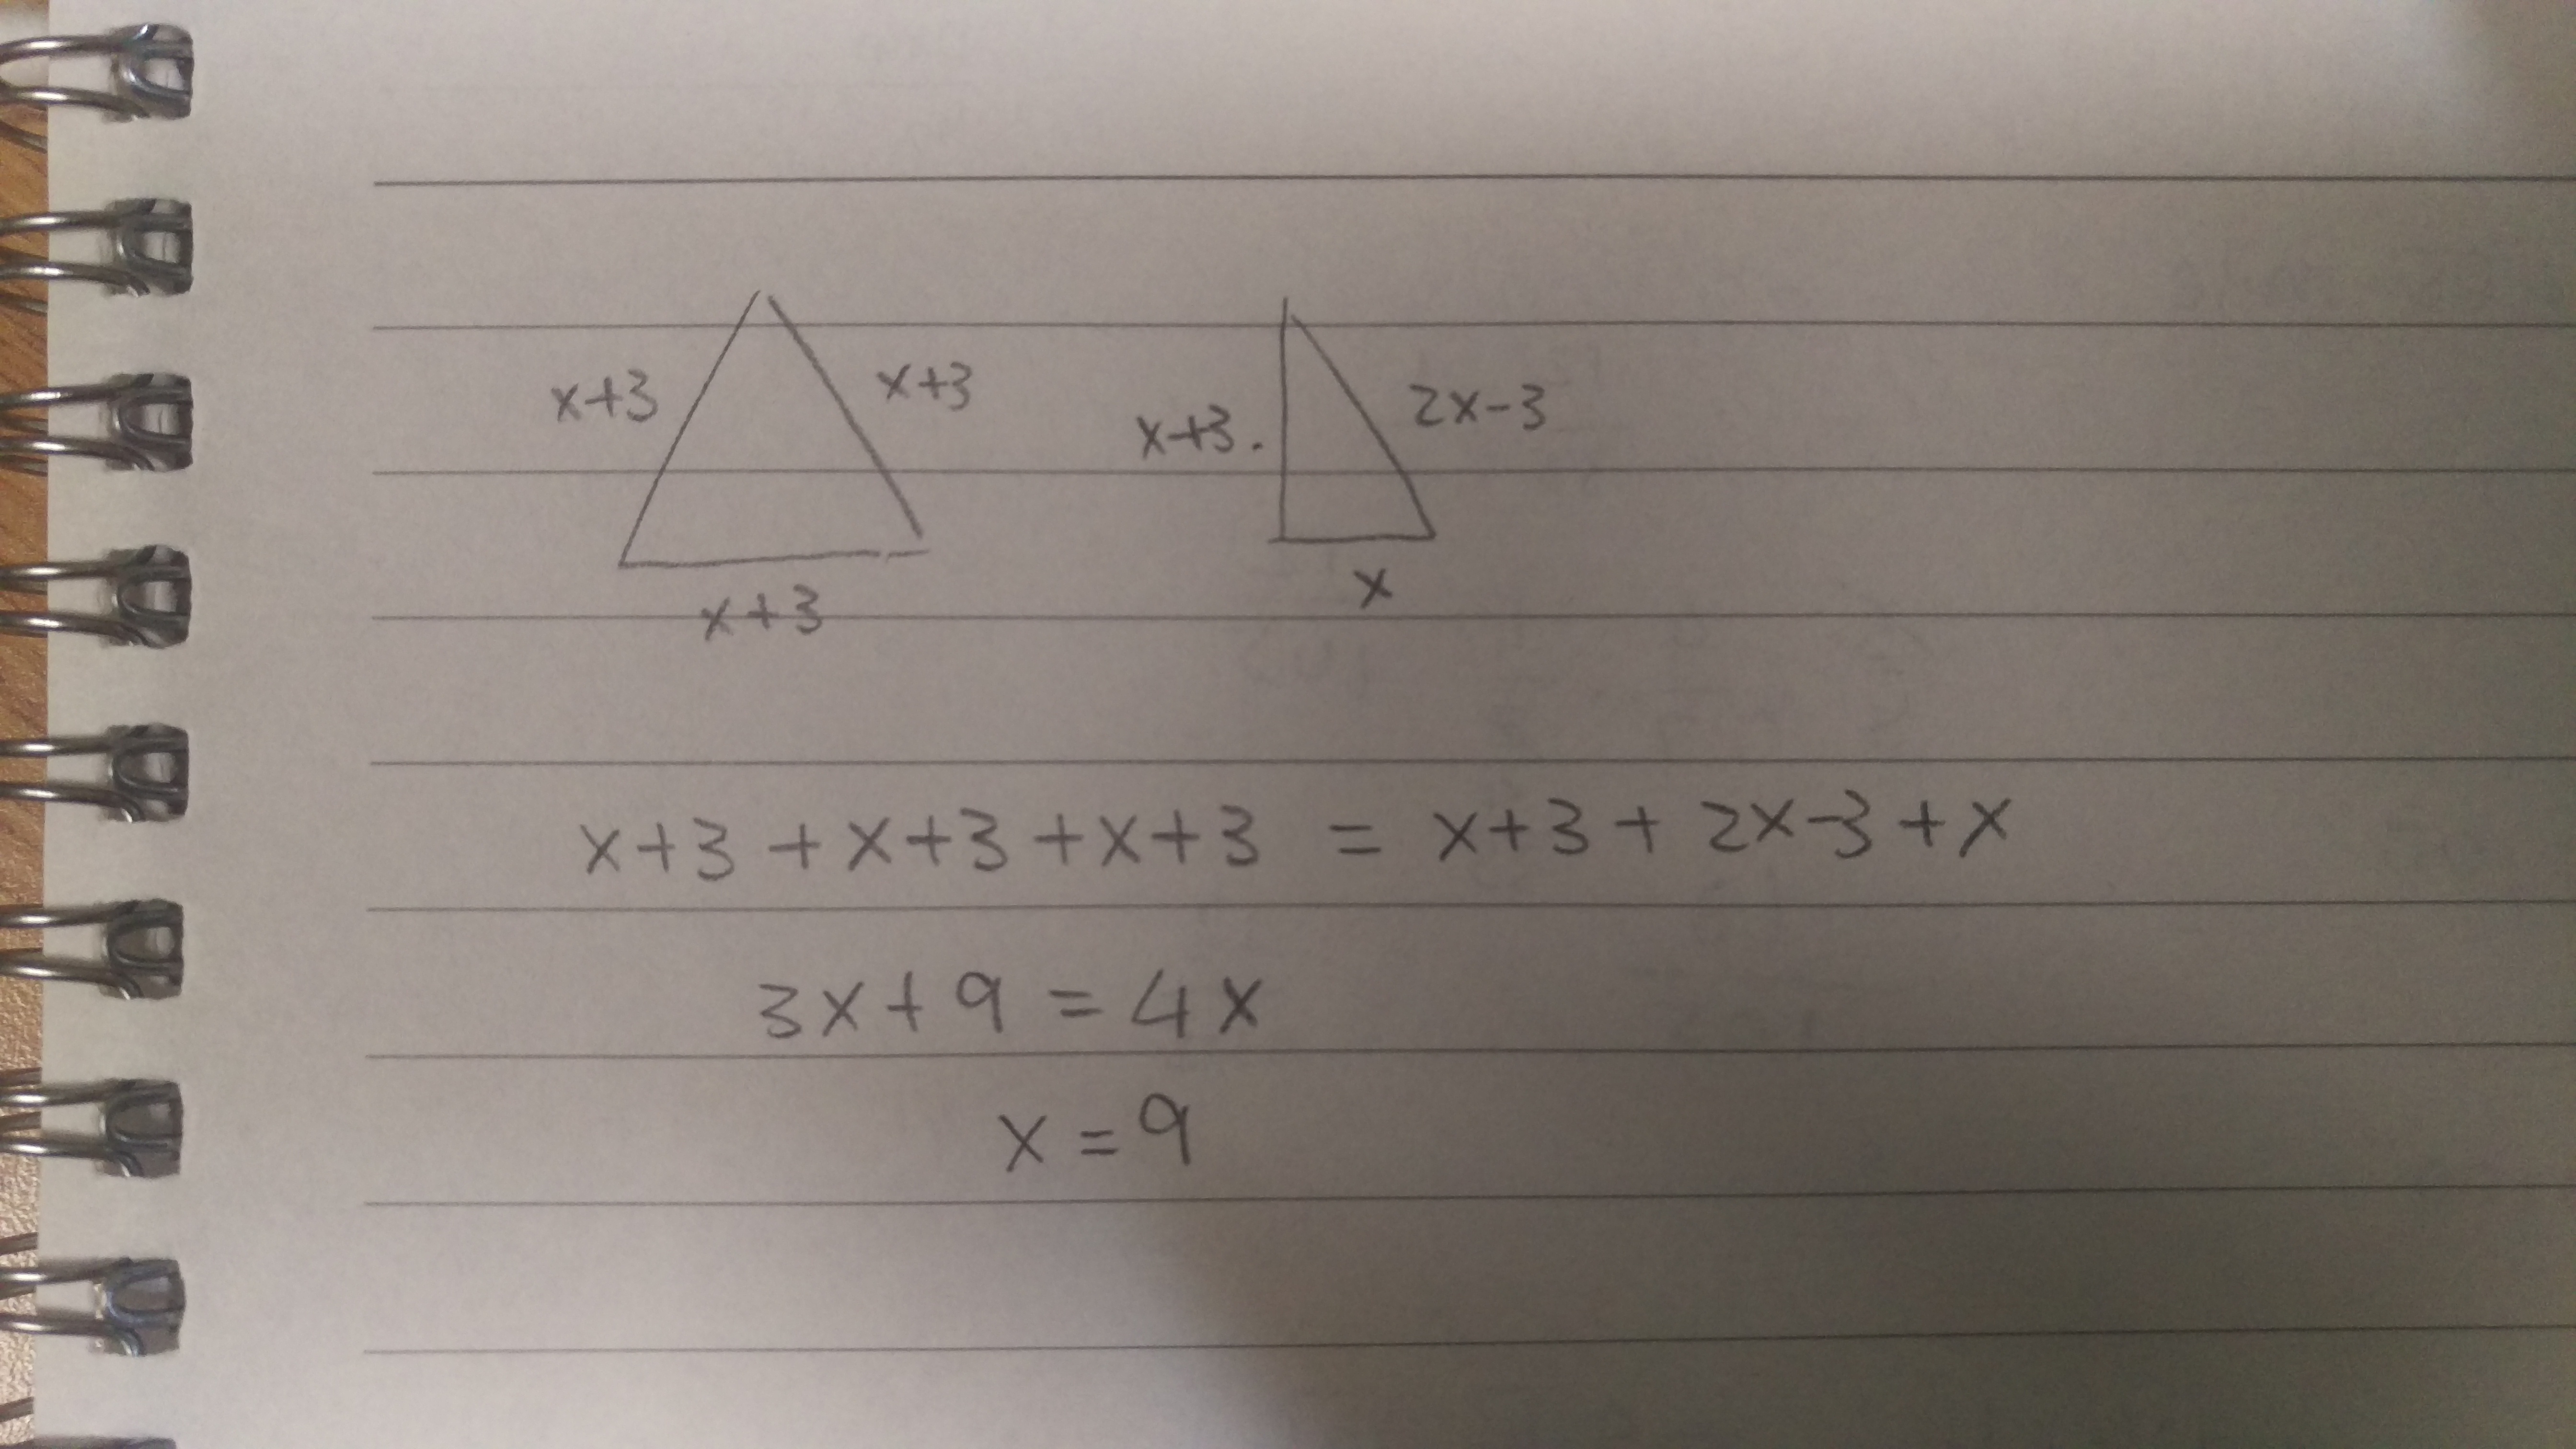 x+3
x+3
x+3
x+3.
2x-3
x
x+3 + x+3 + x+3 = x+3 + 2x-3 + x
3x+9 = 4x
x = 9